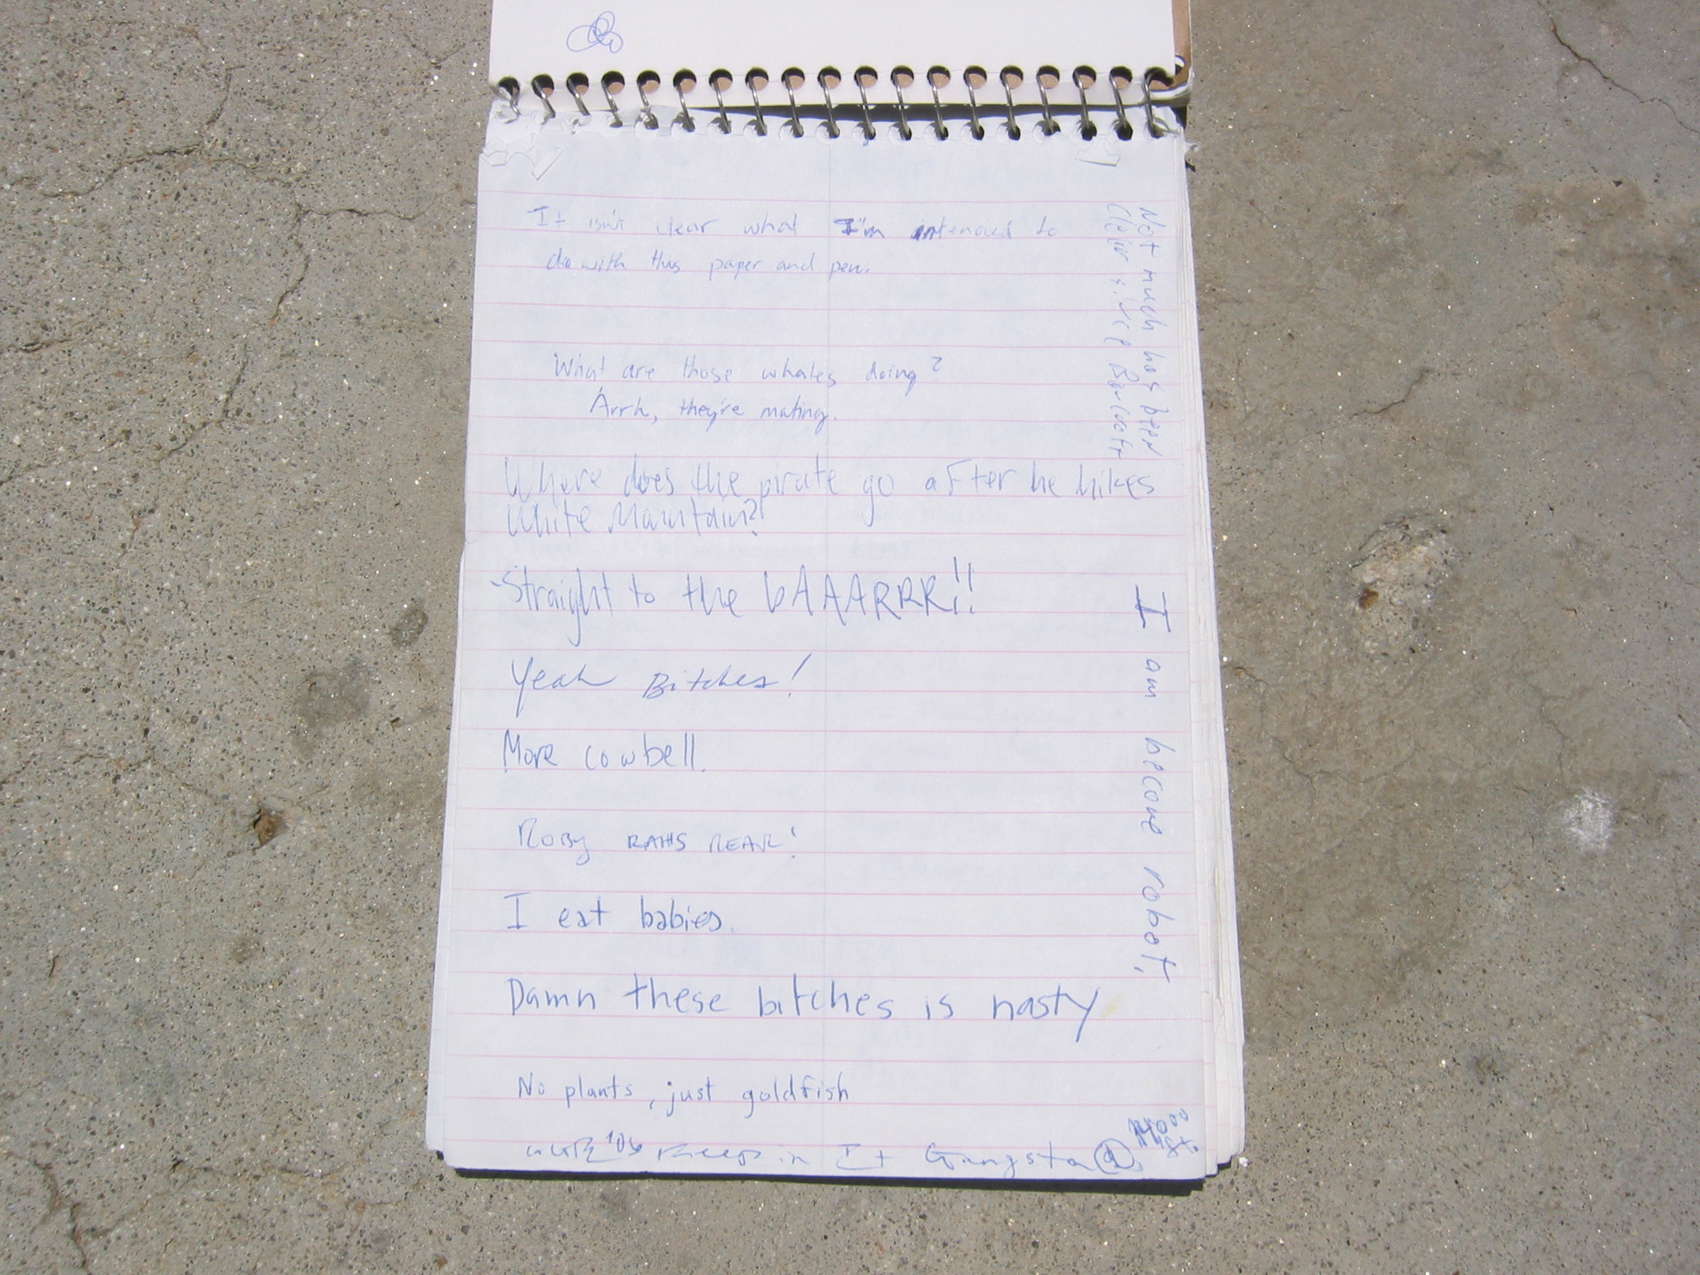 It isn't clear what I'm intended to
do with this paper and pen.
What are those whales doing?
Arrh, they're mating.
Where does the pirate go after he hikes
White Mountain?
-Straight to the bAAARRR!!
Yeah Bitches!
More cowbell.
I eat babies.
Damn these bitches is nasty
No plants, just goldfish
Keep in It Gangsta @
Not much has been
I am become robot.